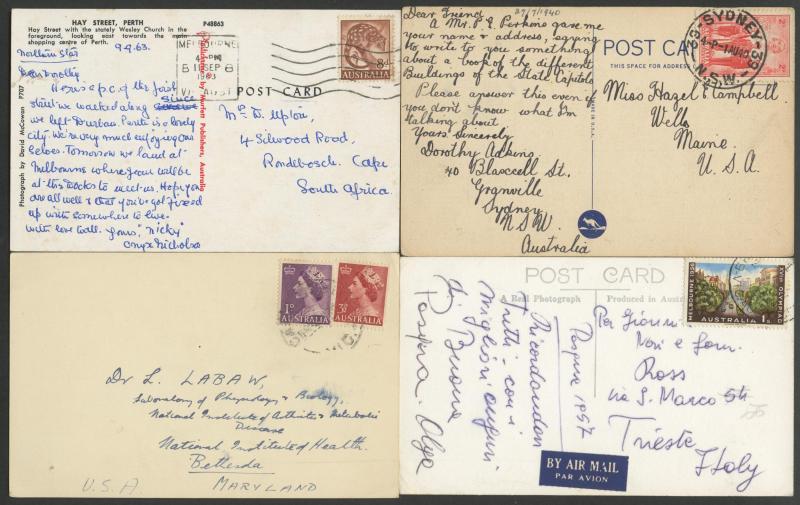 HAY STREET, PERTH
P48863
Hay Street with the stately Wesley Church in the
foreground, looking east towards the main
shopping centre of Perth.
9-9.63.
Northern Star
Dear Dorothy
Here is a p.c. of the first
street we walked along since
we left Durban. Perth is a lovely
city. We're very much enjoying our
selves. Tomorrow we land at
Melbourne where Jean will be
at the docks to meet us. Hope you
are all well & that you've got fixed
up with somewhere to live.
With love to all. Yours, "Nicky"
Onyx Nicholas
Photograph by David McCowan P707
Published by Murfett Publishers, Australia
MELBOURNE
4 - PM
11 SEP
1963
8D
POST CARD
Mrs D. Upton,
4 Silwood Road,
Rondebosch. Cape
South Africa
29/7/1940
Dear Friend
A Mr. P E Perkins gave me
your name & address, saying
to write to you something
about a book of the different
Buildings of the State Capitols
Please answer this even if
you don't know what I'm
talking about
Yours Sincerely
Dorothy Adkins
40 Blaxcell St.
Granville
Sydney
NSW
Australia
MADE IN U.S.A.
POST CARD
THIS SPACE FOR ADDRESS
SYDNEY
N.S.W.
Miss Hazel E Campbell
Wells
Maine
U. S. A.
1D
AUSTRALIA
3½D
AUSTRALIA
Dr L. LABAW,
Laboratory of Physiology & Biology,
National Institute of Arthritis & Metabolic
Disease
National Institute of Health.
Bethesda
MARYLAND
U.S.A
POST CARD
A Real Photograph
Produced in Austr
Pasqua 1957
Ricordandon
tutti, con i
migliori auguri
di Buona
Pasqua. Olga
BY AIR MAIL
PAR AVION
MELBOURNE 1956
XVIth OLYMPIAD
AUSTRALIA
Ross
via S. Marco
Trieste
Italy